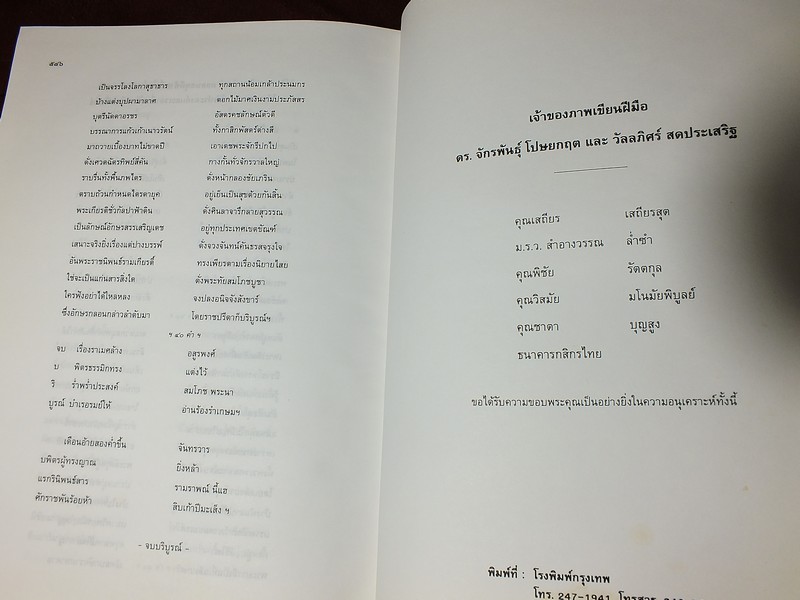 ๕๘๖
เป็นจรรโลงโลกาสุขาขาร ทุกสถานน้อมเกล้าประนมกร
บ้างแต่งบุปผามาลาศ ดอกไม้มาศเงินงามประภัสสร
บุตรีนัดดาอรชร อัสดรคชลักษณ์ตัวดี
บรรณาการแก้วเก้าเนาวรัตน์ ทั้งกาสิกพัสตร์ต่างสี
มาถวายเบื้องบาทไม่ขาดปี เอาเดชพระจักรีปกไป
ดั่งเศวตฉัตรทิพย์สี่คัน กางกั้นทั่วจักรวาลใหญ่
รายรื่นทั้งพื้นภพไตร ดั่งหน้ากลองชัยเภริน
ตราบถ้วนกำหนดไตรดายุค อยู่เย็นเป็นสุขด้วยกันสิ้น
พระเกียรติชั่วกัลปาฟ้าดิน ดั่งศิลาจารึกลายสุวรรณ
เป็นลักษณ์อักษรสรรเสริญเดช อยู่ทุกประเทศเขตขัณฑ์
เสนาะจริงยิ่งเรื่องแต่ปางบรรพ์ ดั่งจวงจันทน์คันธรสจรุงใจ
อันพระราชนิพนธ์รามเกียรติ์ ทรงเพียรตามเรื่องนิยายไสย
ใช่จะเป็นแก่นสารสิ่งใด ดั่งพระทัยสมโภชบูชา
ใครฟังอย่าได้ใหลหลง จงปลงอนิจจังสังขาร์
ซึ่งอักษรกลอนกล่าวลำดับมา โดยราชปรีดาก็บริบูรณ์ฯ
ฯ ๔๐ คำ ฯ
จบ เรื่องราเมศล้าง อสูรพงศ์
บ พิตรธรรมิกทรง แต่งไว้
ริ ร่ำพร่ำประสงค์ สมโภช พระนา
บูรณ์ บำเรอรมย์ให้ อ่านร้องรำเกษมฯ
เดือนอ้ายสองค่ำขึ้น จันทรวาร
บพิตรผู้ทรงญาณ ยิ่งหล้า
แรกรินิพนธ์สาร รามราพณ์ นี้แฮ
ศักราชพันร้อยห้า สิบเก้าปีมะเส็ง ฯ
- จบบริบูรณ์ -
เจ้าของภาพเขียนฝีมือ
ดร. จักรพันธุ์ โปษยกฤต และ วัลลภิศร์ สดประเสริฐ
คุณเสถียร เสถียรสุต
ม.ร.ว. สำอางวรรณ ล่ำซำ
คุณพิชัย รัตตกุล
คุณวิสมัย มโนมัยพิบูลย์
คุณชาดา บุญสูง
ธนาคารกสิกรไทย
ขอได้รับความขอบพระคุณเป็นอย่างยิ่งในความอนุเคราะห์ทั้งนี้
พิมพ์ที่ : โรงพิมพ์กรุงเทพ
โทร. 247-1941, โทรสาร.